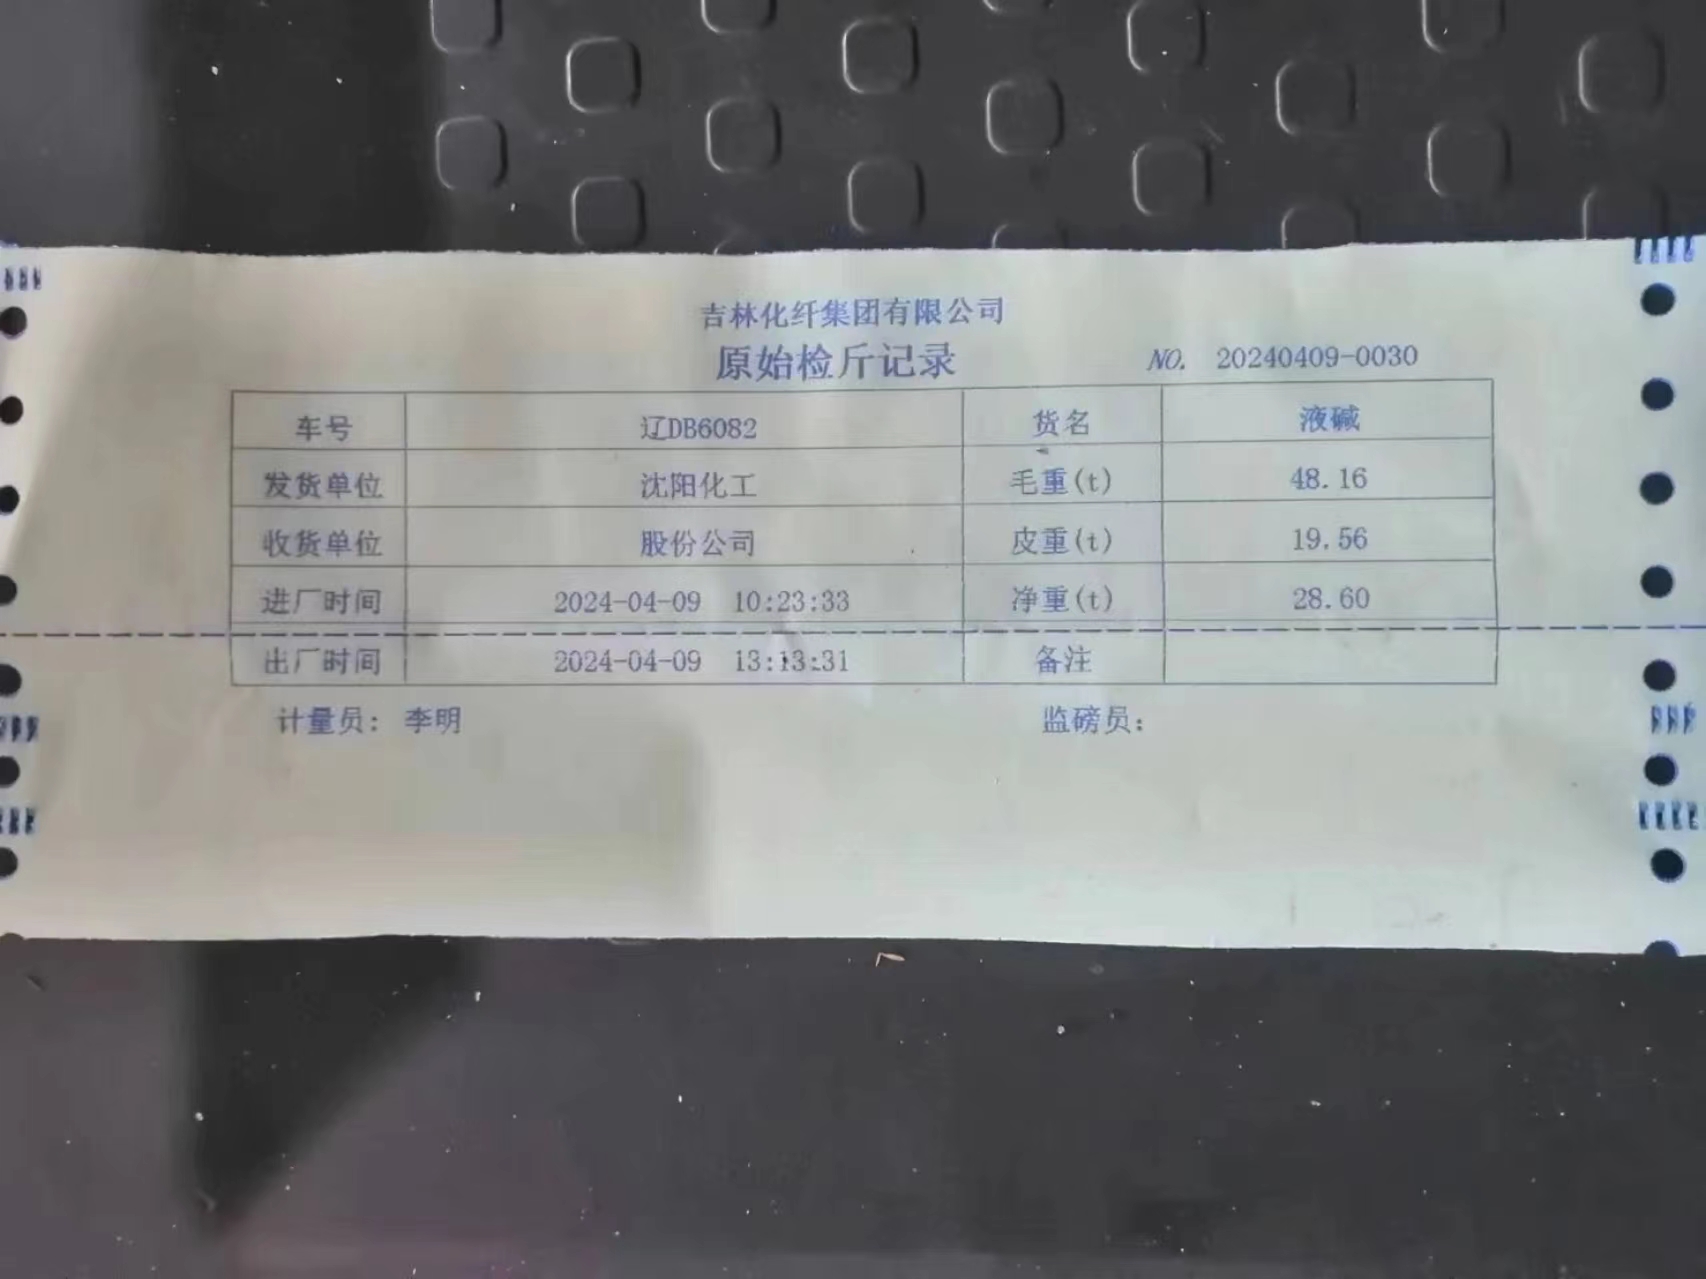 吉林化纤集团有限公司
原始检斤记录 NO. 20240409-0030
车号 辽DB6082 货名 液碱
发货单位 沈阳化工 毛重(t) 48.16
收货单位 股份公司 皮重(t) 19.56
进厂时间 2024-04-09 10:23:33 净重(t) 28.60
出厂时间 2024-04-09 13:13:31 备注
计量员: 李明 监磅员: